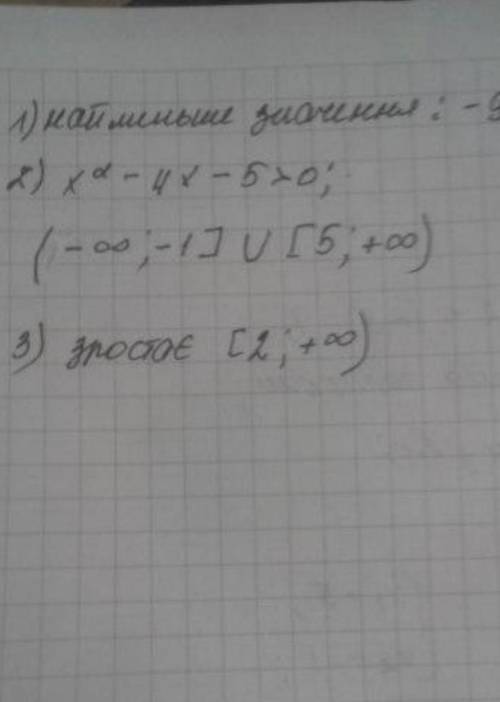 1) найменьше значення: -9
2) x² - 4x - 5 > 0;
(-∞; -1] ∪ [5; +∞)
3) зростає [2; +∞)